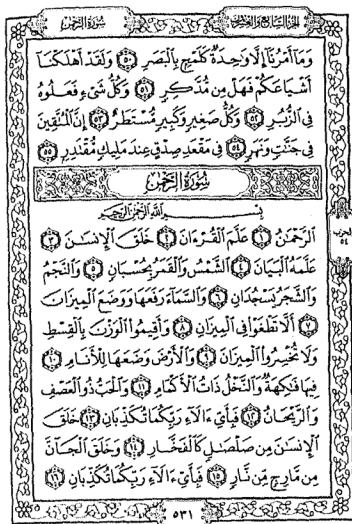 الجزء السابع والعشرون
سورة الرحمن
وَمَآ أَمْرُنَآ إِلَّا وَٰحِدَةٌ كَلَمْحٍۭ بِٱلْبَصَرِ ٥٠ وَلَقَدْ أَهْلَكْنَآ
أَشْيَاعَكُمْ فَهَلْ مِن مُّدَّكِرٍ ٥١ وَكُلُّ شَىْءٍ فَعَلُوهُ
فِى ٱلزُّبُرِ ٥٢ وَكُلُّ صَغِيرٍ وَكَبِيرٍ مُّسْتَطَرٌ ٥٣ إِنَّ ٱلْمُتَّقِينَ
فِى جَنَّٰتٍ وَنَهَرٍ ٥٤ فِى مَقْعَدِ صِدْقٍ عِندَ مَلِيكٍ مُّقْتَدِرٍۭ ٥٥
سُورَةُ الرَّحْمَٰن
بِسْمِ ٱللَّهِ ٱلرَّحْمَٰنِ ٱلرَّحِيمِ
ٱلرَّحْمَٰنُ ١ عَلَّمَ ٱلْقُرْءَانَ ٢ خَلَقَ ٱلْإِنسَٰنَ ٣
عَلَّمَهُ ٱلْبَيَانَ ٤ ٱلشَّمْسُ وَٱلْقَمَرُ بِحُسْبَانٍ ٥ وَٱلنَّجْمُ
وَٱلشَّجَرُ يَسْجُدَانِ ٦ وَٱلسَّمَآءَ رَفَعَهَا وَوَضَعَ ٱلْمِيزَانَ
٧ أَلَّا تَطْغَوْا۟ فِى ٱلْمِيزَانِ ٨ وَأَقِيمُوا۟ ٱلْوَزْنَ بِٱلْقِسْطِ
وَلَا تُخْسِرُوا۟ ٱلْمِيزَانَ ٩ وَٱلْأَرْضَ وَضَعَهَا لِلْأَنَامِ ١٠
فِيهَا فَٰكِهَةٌ وَٱلنَّخْلُ ذَاتُ ٱلْأَكْمَامِ ١١ وَٱلْحَبُّ ذُو ٱلْعَصْفِ
وَٱلرَّيْحَانُ ١٢ فَبِأَىِّ ءَالَآءِ رَبِّكُمَا تُكَذِّبَانِ ١٣ خَلَقَ
ٱلْإِنسَٰنَ مِن صَلْصَٰلٍ كَٱلْفَخَّارِ ١٤ وَخَلَقَ ٱلْجَآنَّ
مِن مَّارِجٍ مِّن نَّارٍ ١٥ فَبِأَىِّ ءَالَآءِ رَبِّكُمَا تُكَذِّبَانِ ١٦
٥٣١
الحزب
٥٤